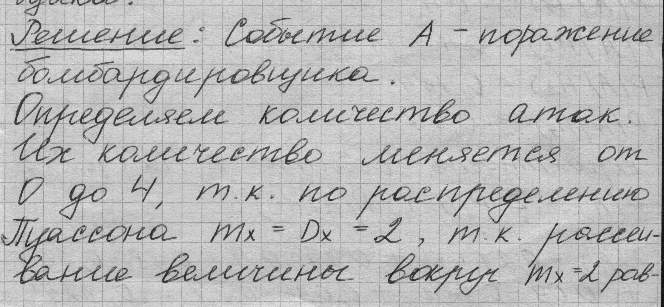 Решение: Событие А - поражение
бомбардировщика.
Определяем количество атак.
Их количество меняется от
0 до 4, т.к. по распределению
Пуассона mx = Dx = 2, т.к. рассеи-
вание величины вокруг mx=2 рав-